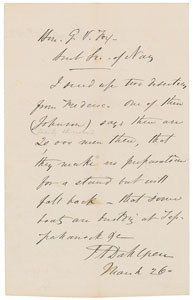 Hon. G. V. Fox
Asst Sec. of Nav
I send up two deserters
from Frederic. one of them
(Johnson) says there are
20.000 men there, that
they make no preparation
for a stand but will
fall back - that some
boats are building at Tap-
pahannock &c
J A Dahlgren
March 26.